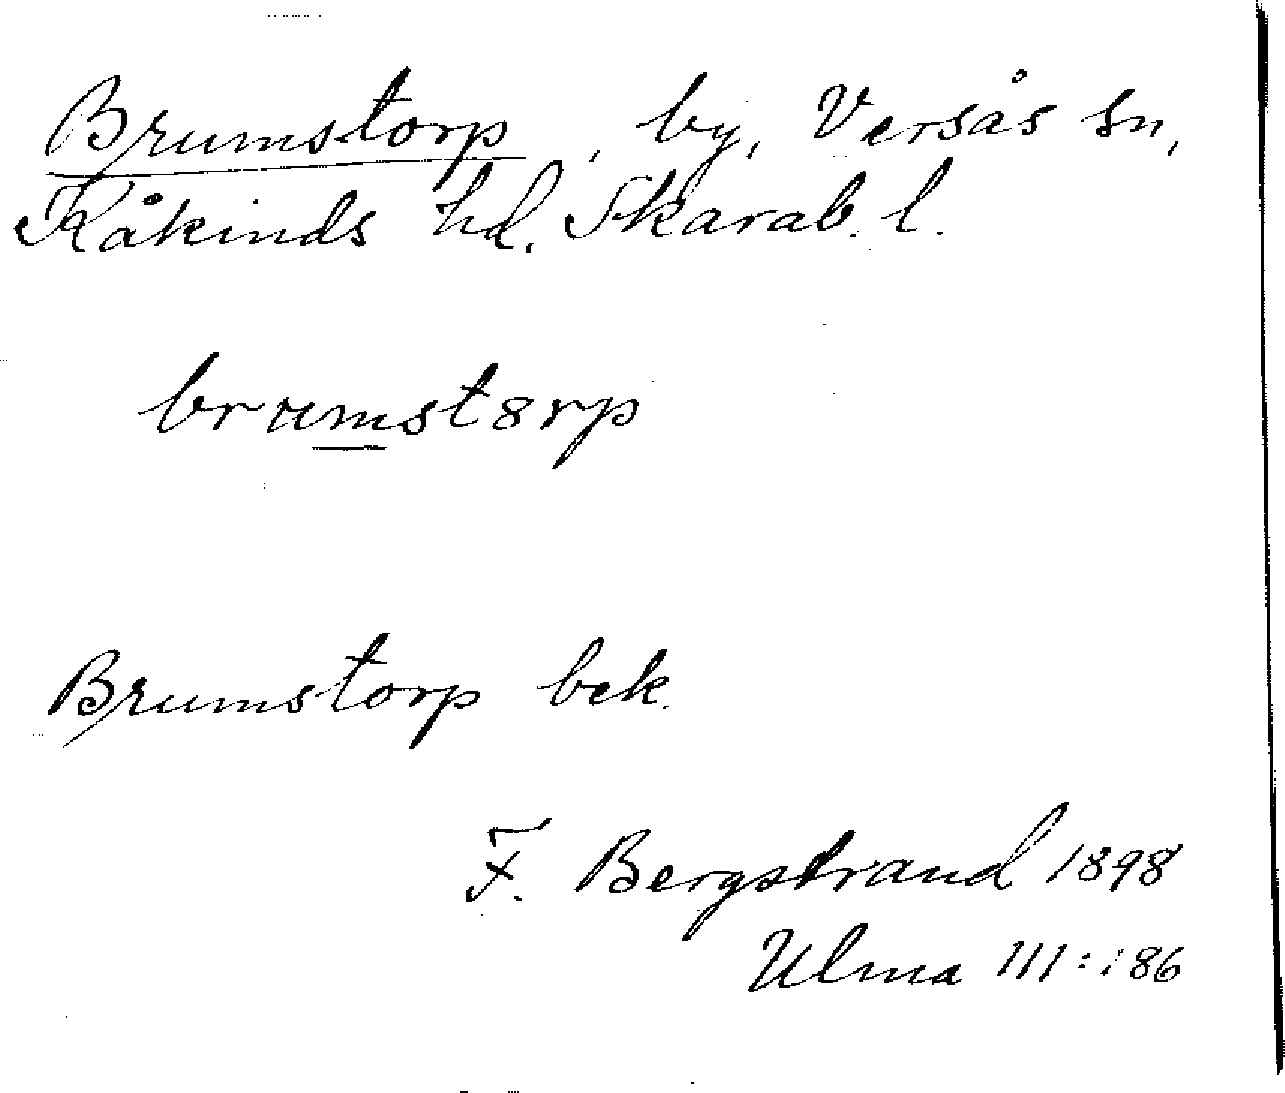 Brumstorp, by, Versås sn,
Kåkinds hd. Skarab. l.
brumst8rp
Brumstorp bek.
F. Bergstrand 1898
Ulma 111:186